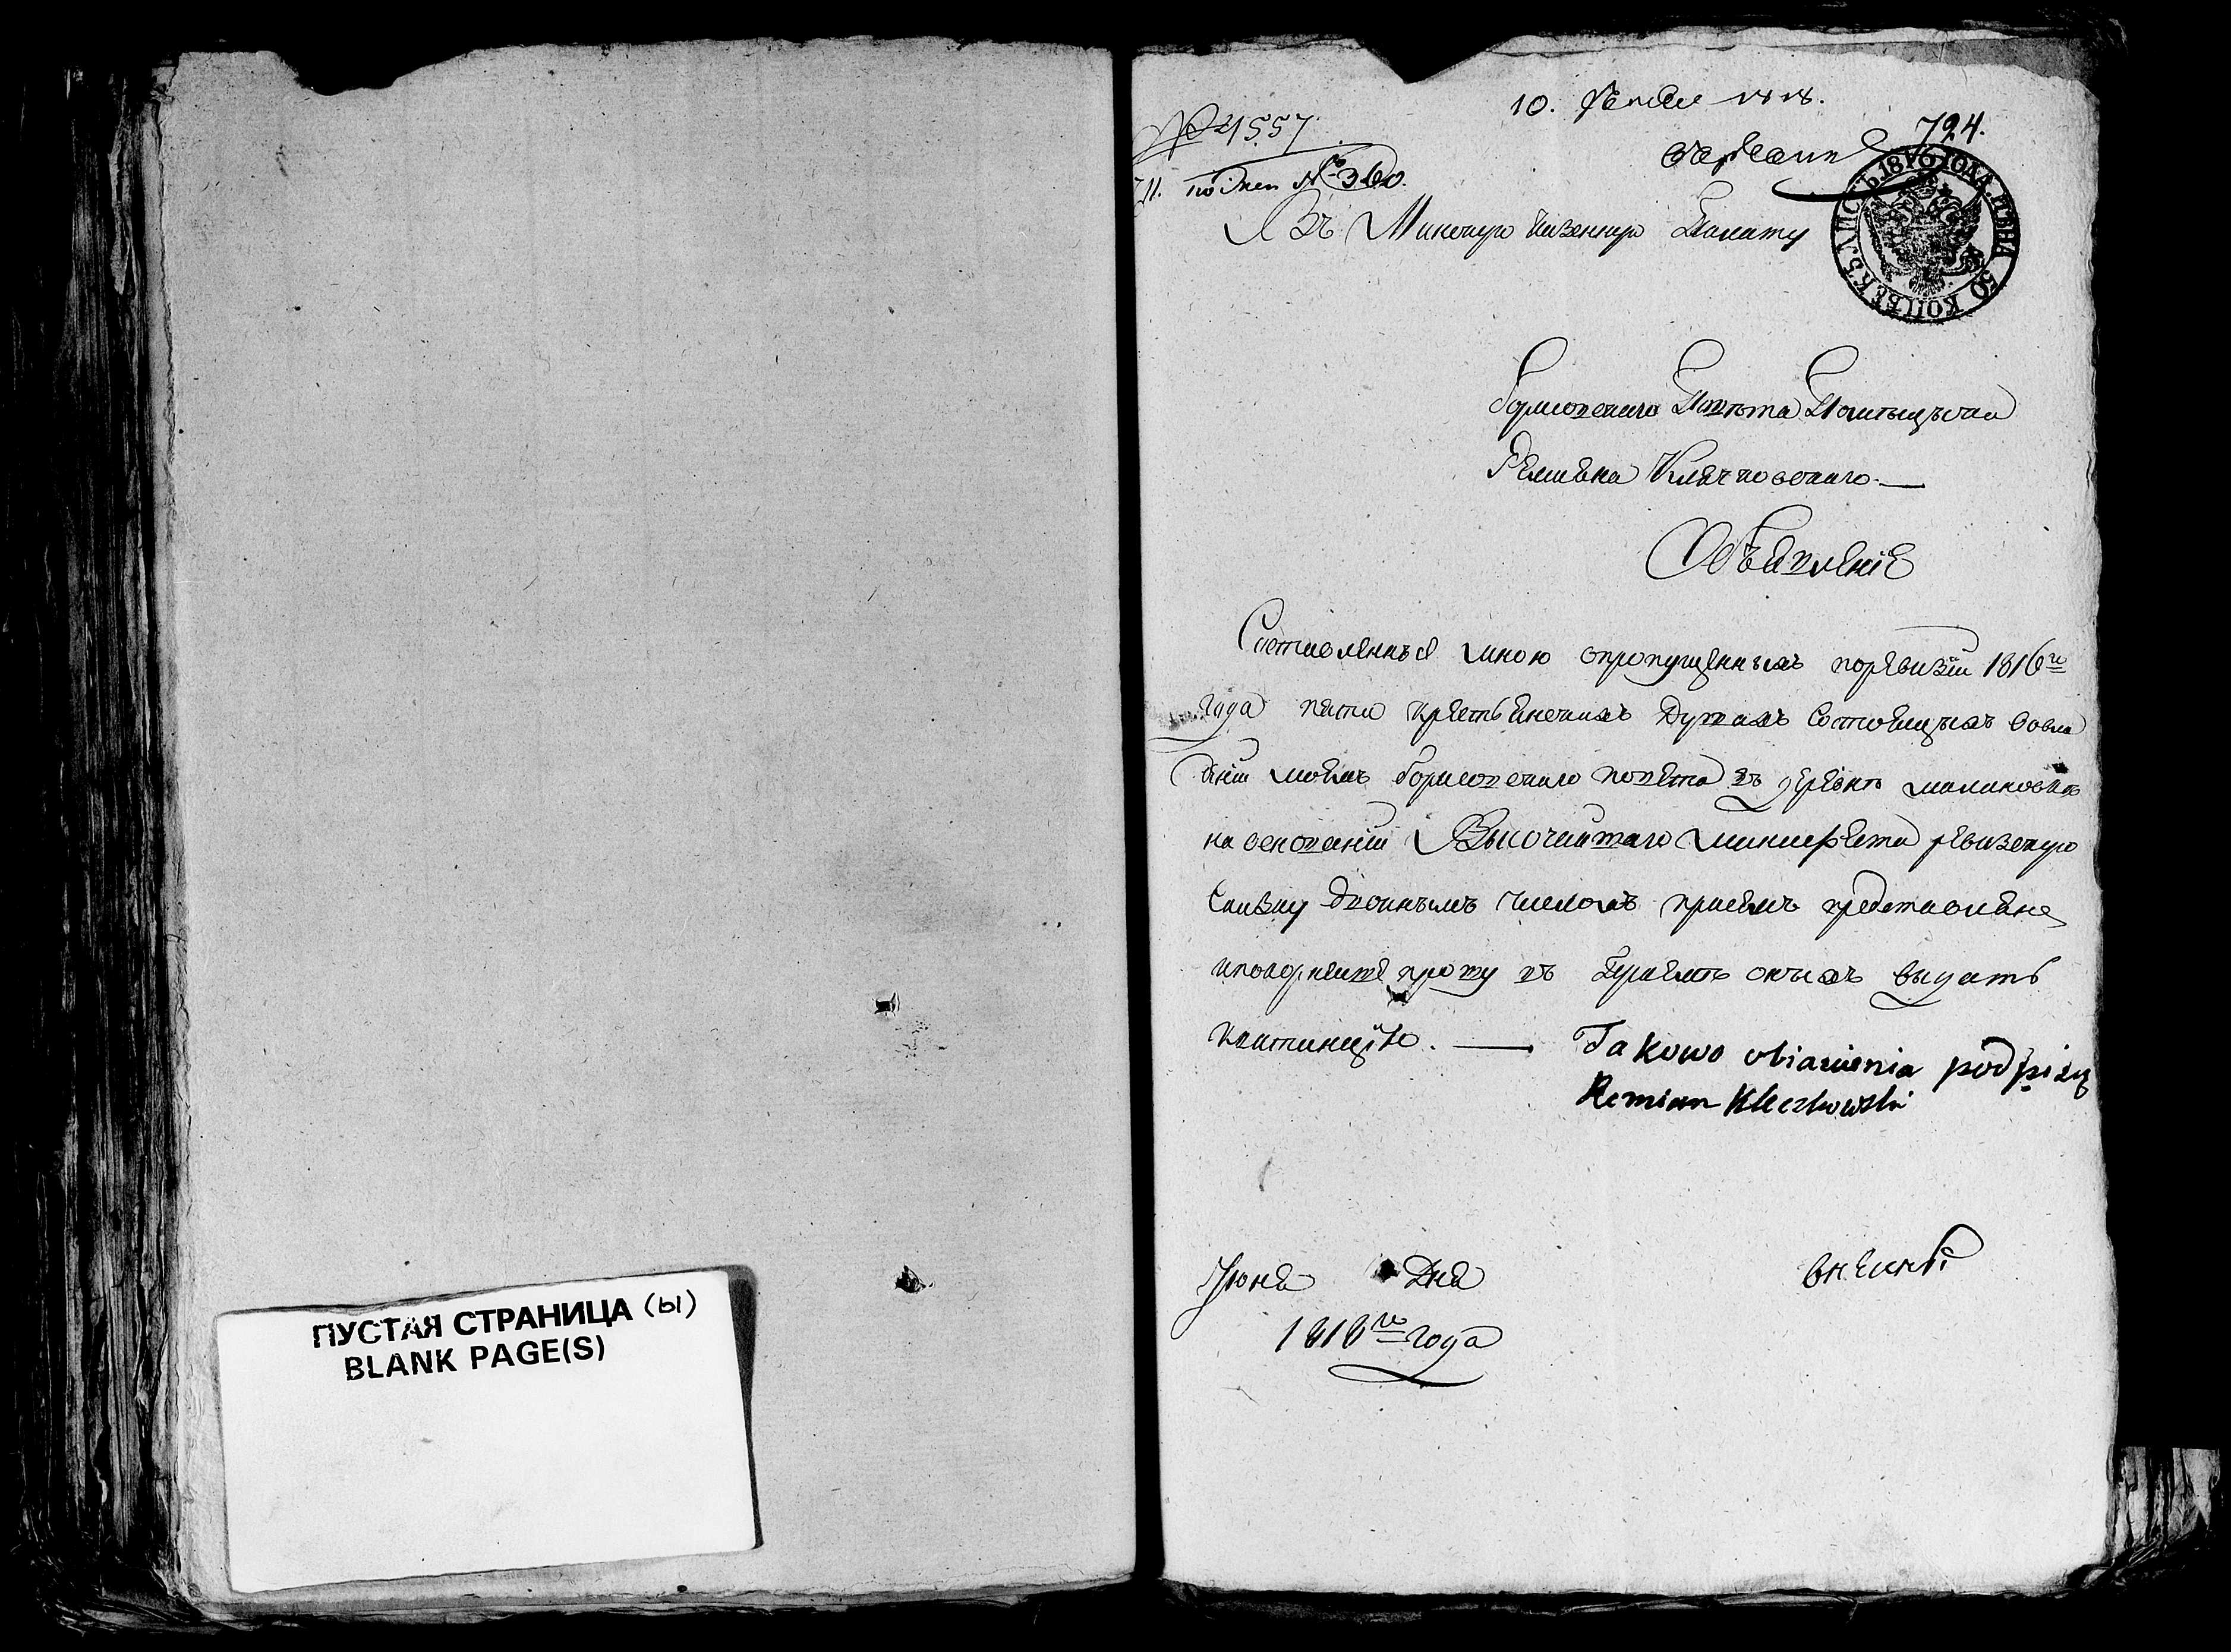 ПУСТАЯ СТРАНИЦА (ы)
BLANK PAGE(S)
10.
№ 4557
724.
№ 360.
ЛИСТЪ. 1816 ГОДА. ЦѢНА 50 КОПѢЕКЪ.
Въ Минскую Казенную Палату
Борисовскаго Повѣта Помѣщика
Клечковскаго.
Объявленіе
Составленные мною о пропущенныхъ по ревизіи 1816го
года пяти крестьянскихъ душахъ состоящихъ во вла
деніи моемъ Борисовскаго повета въ деревнѣ Малиновкѣ
на основаніи Высочайшаго манифеста ревизскую
сказку двоинымъ числомъ присемъ представляя
и покорнейше прошу въ приемѣ оныхъ выдать
квитанцію. — Takowo obiawienia podpisuję
Remian Kleczkowski
Іюня Дня
1818го года